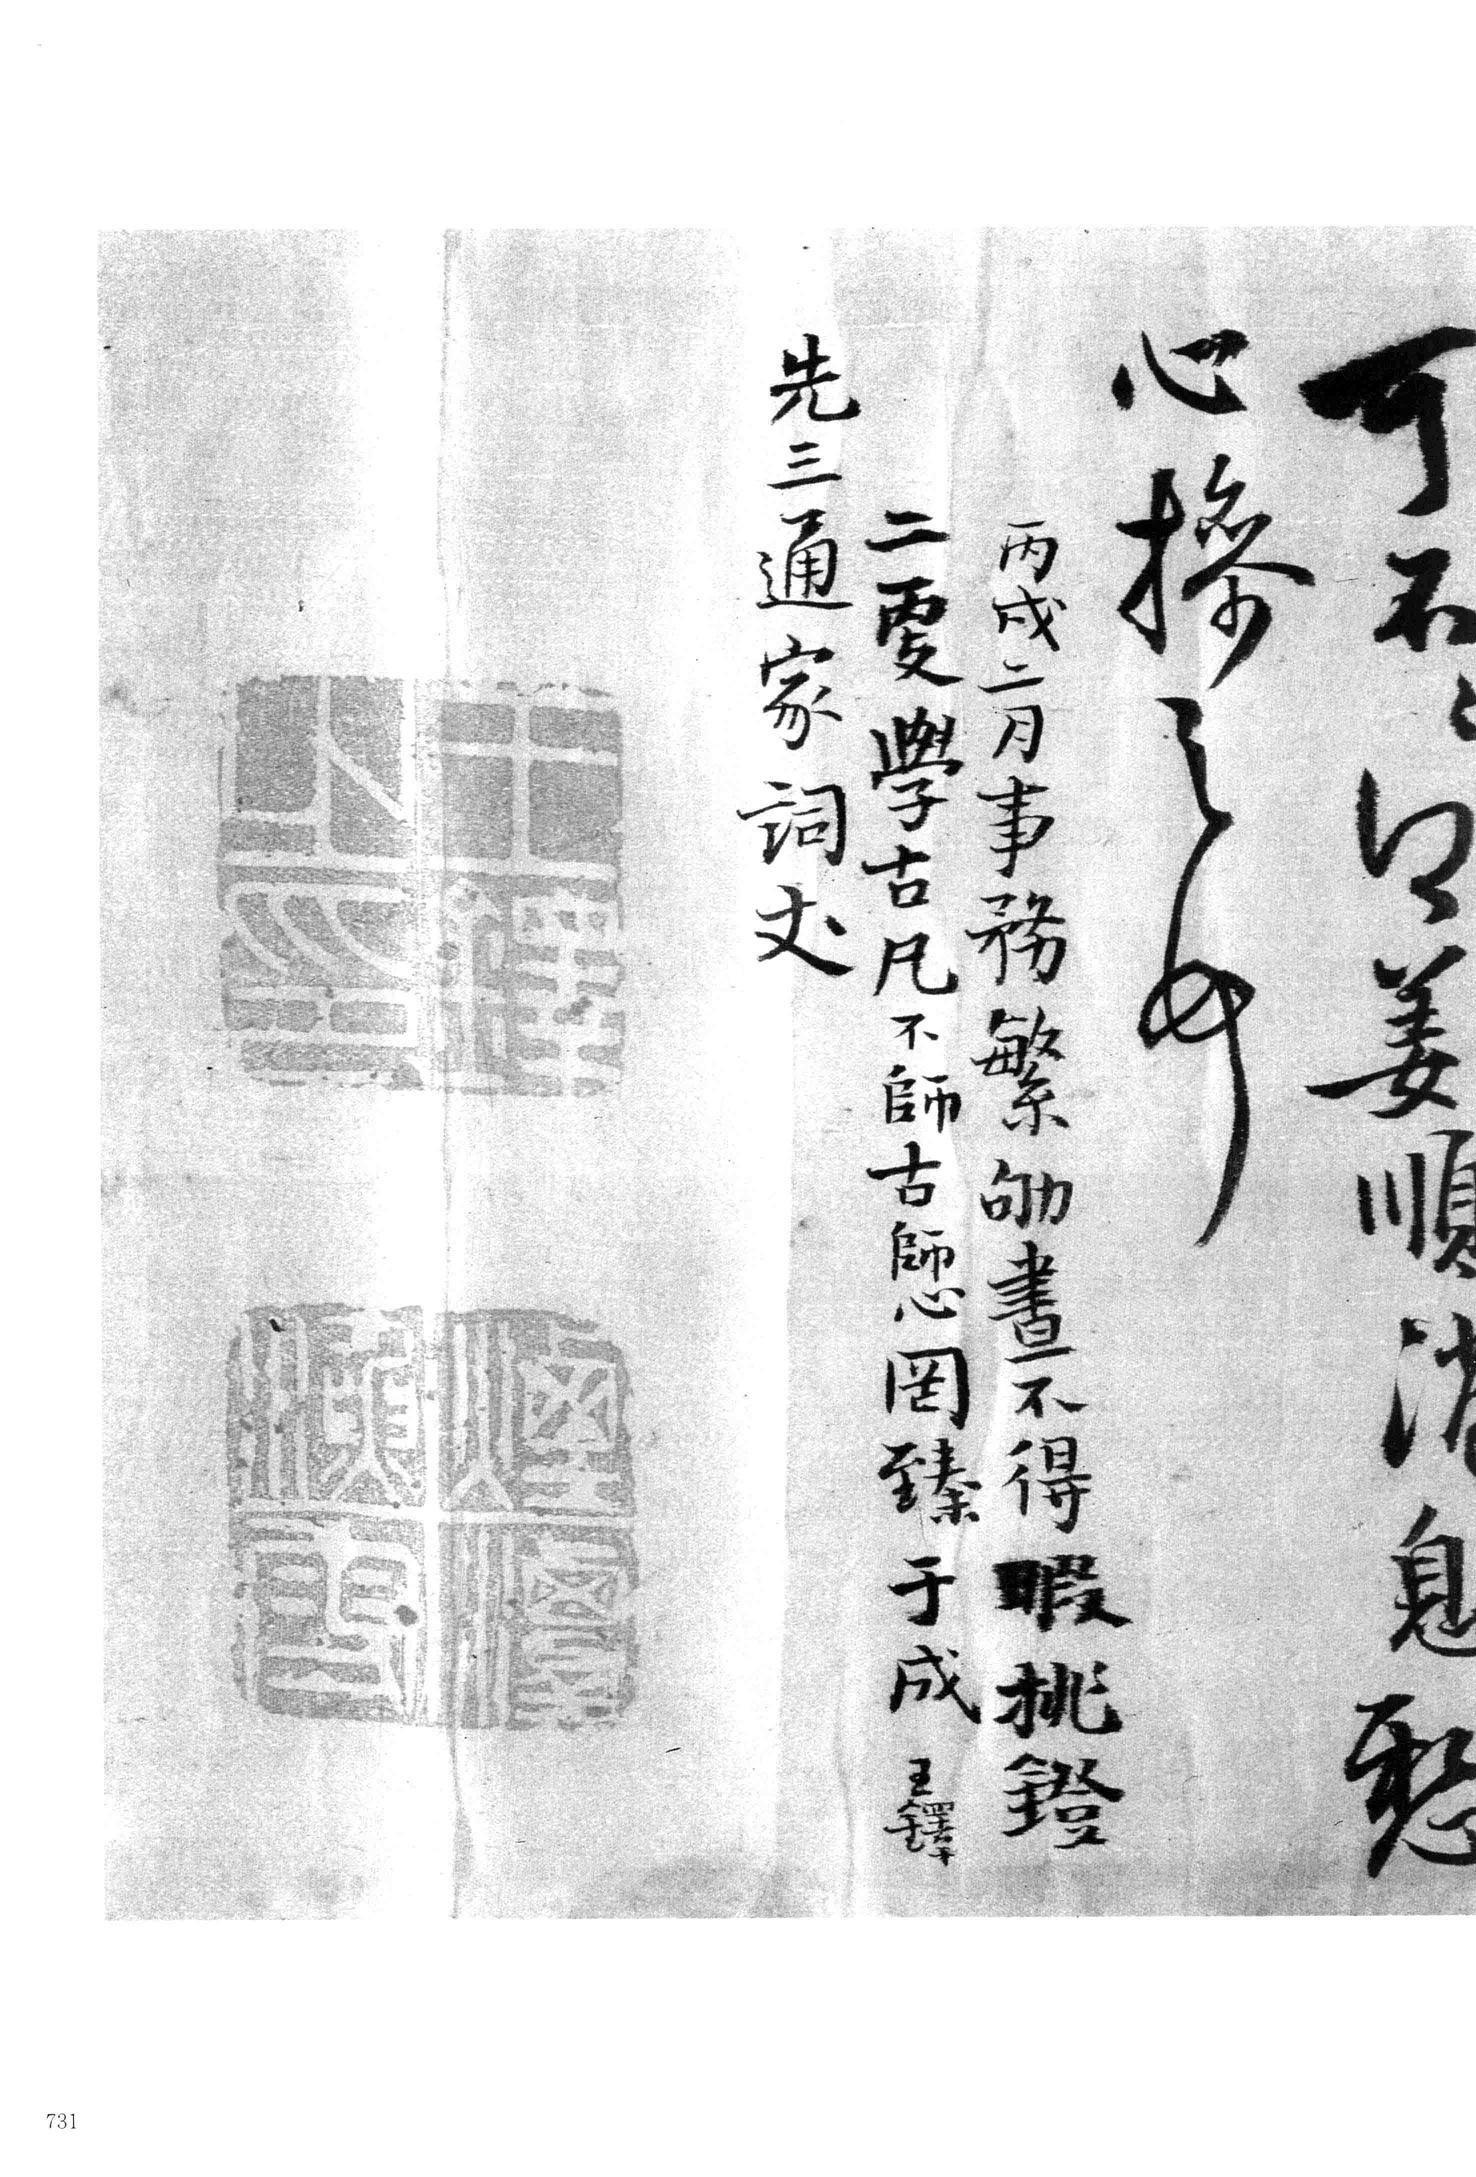 可不姜順消息
心操之
丙戌二月事務繁劬晝不得暇挑鐙
二更學古凡不師古師心罔臻于成 王鐸
先三通家詞丈
王鐸之印
731